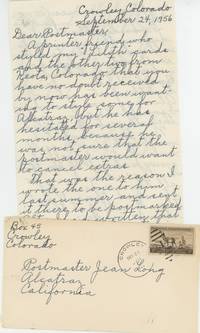 Crowley, Colorado
September 24, 1956
Dear Postmaster,
A printer friend who
styled my
and the other two from
Keota, Colorado that you
have no doubt received
by now has been want-
ing to style some for
Alcatraz, but he has
hesitated for several
months, because he
was not sure that the
postmaster would want
to cancel extras.
That was the reason I
wrote the one to him
last summer and sent
it there to be postmarked
Box 45
Crowley
Colorado
CROWLEY
Postmaster Jean Long
Alcatraz
California